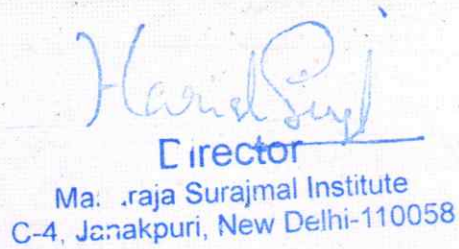 Director
Maharaja Surajmal Institute
C-4, Janakpuri, New Delhi-110058